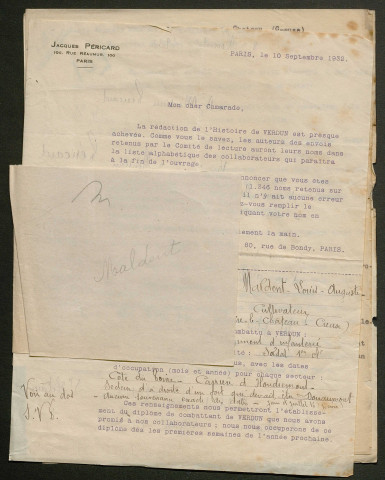 JACQUES PÉRICARD
160, RUE RÉAUMUR, 160
PARIS
PARIS, le 10 Septembre 1932.
Mon cher Camarade,
La rédaction de l'Histoire de VERDUN est presque
achevée. Comme vous le savez, les auteurs des envois
retenus par le Comité de lecture auront leurs noms dans
la liste alphabétique des collaborateurs qui paraîtra
à la fin de l'ouvrage.
noncer que vous êtes
noms retenus sur
il n'y ait aucune erreur
vous remplir le
iquant votre nom en
lement la main.
80, rue de Bondy, PARIS.
Maldent
Maldent Louis-Auguste
Cultivateur
Creuse)
combattu à VERDUN :
d'infanterie
Soldat
d'occupation (mois et année) pour chaque secteur
Côte du Poivre
Secteur à droite d'un fort Douaumont
Voir au dos
Ces renseignements nous permettront l'établisse-
ment du diplôme de combattant de VERDUN que nous avons
promis à nos collaborateurs ; nous nous occuperons de ce
diplôme dès les premières semaines de l'année prochaine.